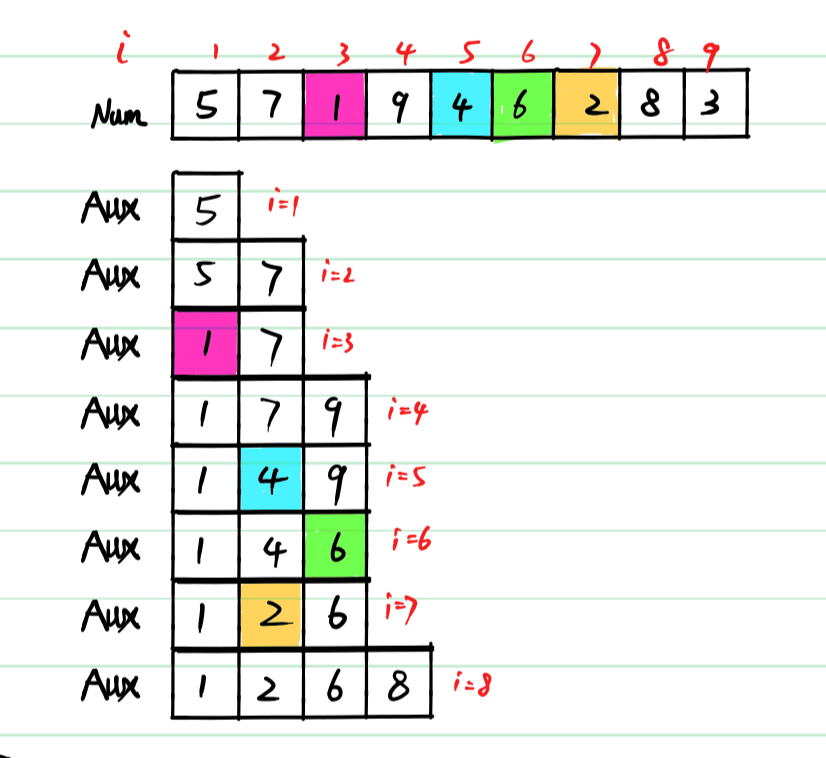 i 1 2 3 4 5 6 7 8 9
Num 5 7 1 9 4 6 2 8 3
Aux 5 i=1
Aux 5 7 i=2
Aux 1 7 i=3
Aux 1 7 9 i=4
Aux 1 4 9 i=5
Aux 1 4 6 i=6
Aux 1 2 6 i=7
Aux 1 2 6 8 i=8